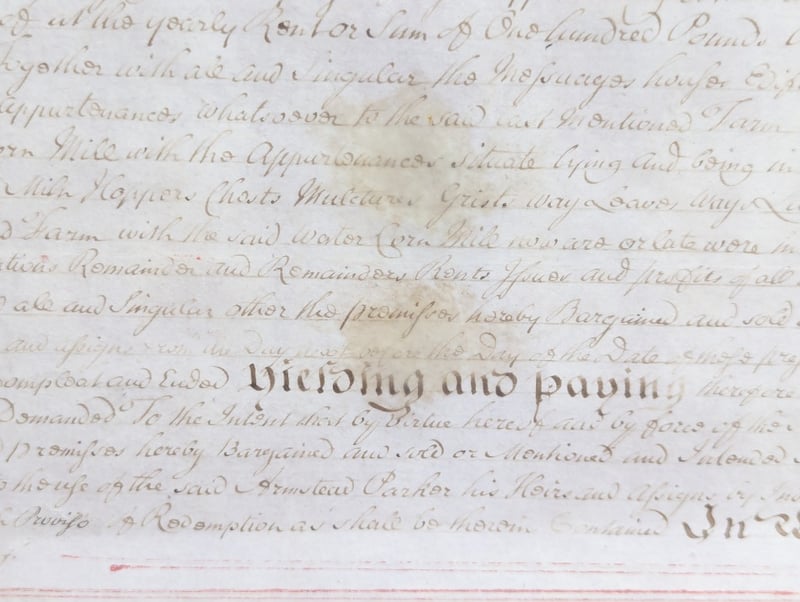 at the yearly Rent or Sum of One hundred Pounds
together with all and Singular the Messuages houses Edif
appurtenances whatsoever to the said last Mentioned Farm
orn Mill with the Appurtenances situate lying and being in
Miln Hoppers Chests Mulctures Grists way Leaves Ways
Farm with the said Water Corn Mill now are or late were in
ations Remainder and Remainders Rents Issues and profits of all
all and Singular other the premisses hereby Bargained and sold
and assigns from the Day next before the Day of the Date of these pre
ompleat and Ended Yielding and paying therefore
Demanded To the Intent that by Virtue hereof and by force of the
premisses hereby Bargained and sold or Mentioned and Intended
the use of the said Armstead Parker his Heirs and Assigns by
Proviso of Redemption as shall be therein Contained In W